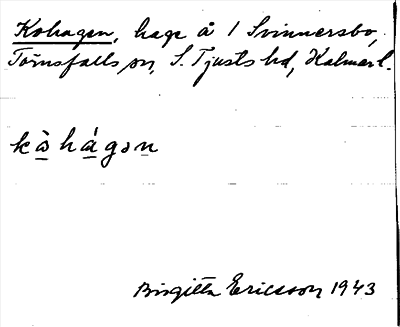 Kohagen, hage å 1 Svinnersbo,
Törnsfalls sn, S. Tjusts hd, Kalmar l.
kò̠há̠gən̠
Birgitta Ericsson 1943